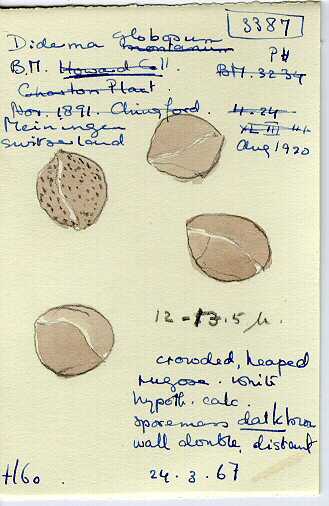 3387
Diderma globosum
montanum
PH
B.M. Howard Coll. B.M. 3234
Charlton Plant.
Nov. 1891. Chingford. 4.24
Meiningen
Switzerland Aug 1920
12-13.5 µ.
crowded, heaped
rugose. white
hypoth. calc.
sporemass dark brow
wall double, distant
H60. 24.3.67